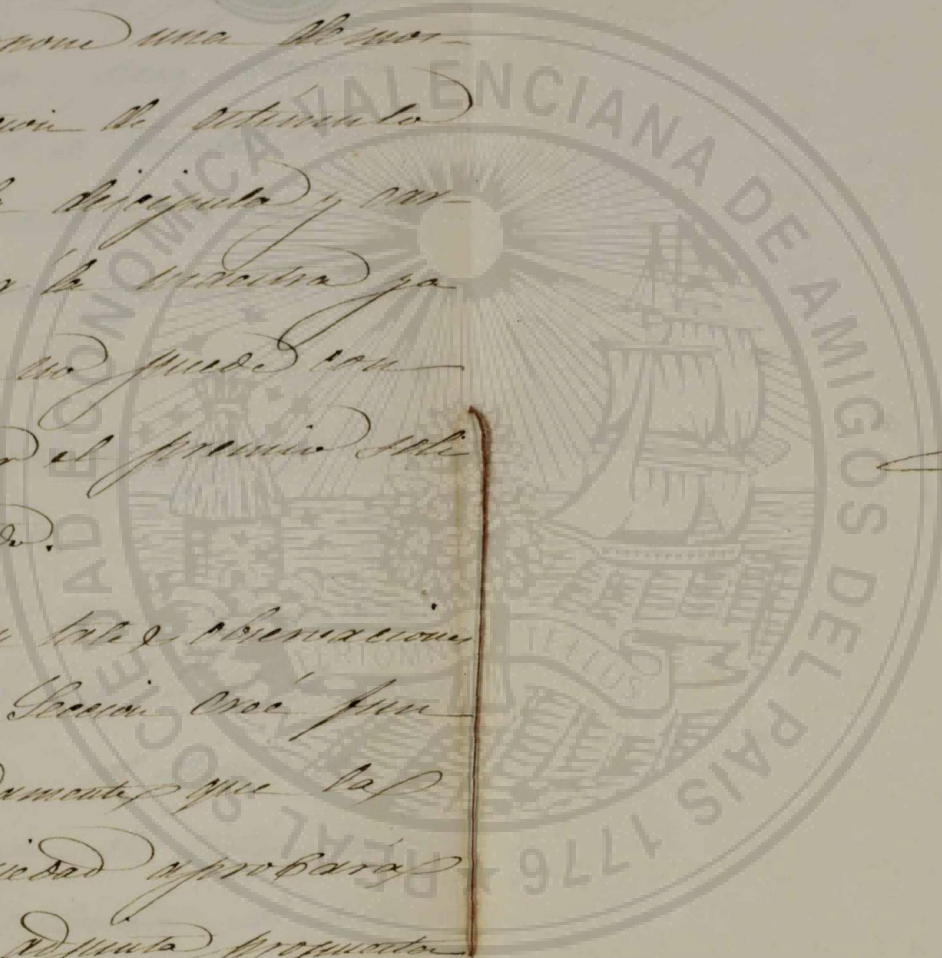 pone una demos-
cion de estimulo
discipula y car-
á la maestra pa
no puede con
r el premio soli
do.
tales observaciones
Seccion creé fun
damente que la
iedad aprobará
adjunta propuesta
REAL SOCIEDAD ECONOMICA VALENCIANA DE AMIGOS DEL PAIS 1776 ★